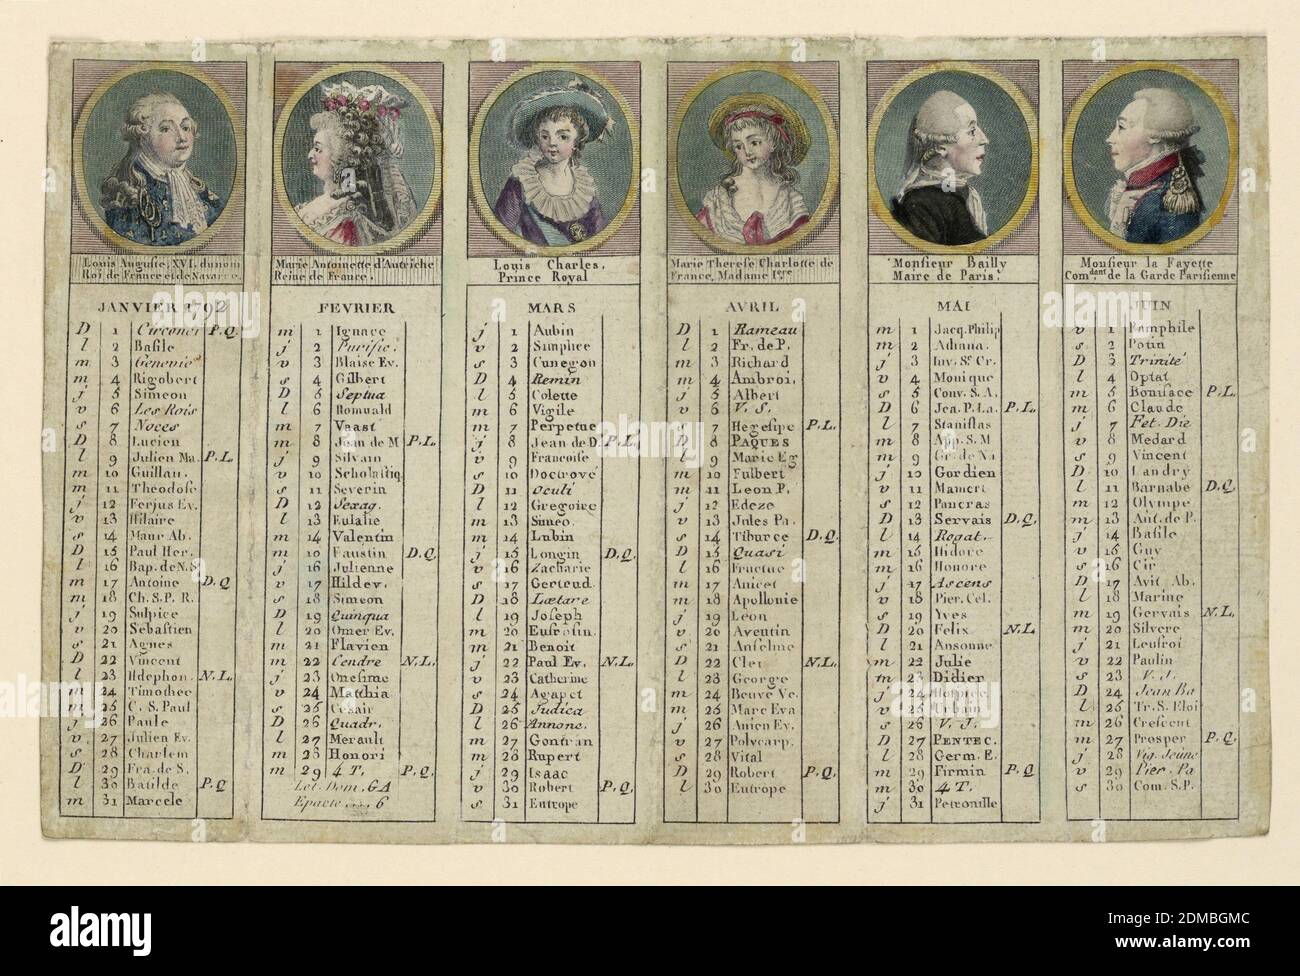 Louis Auguste, XVI. du nom
Roi de France et de Navarre.
JANVIER 1792
D 1 Circonci P.Q.
l 2 Basile
m 3 Genevie
m 4 Rigobert
j 5 Simeon
v 6 Les Rois
s 7 Noces
D 8 Lucien
l 9 Julien Ma. P.L.
m 10 Guillau.
m 11 Theodose
j 12 Ferjus Ev.
v 13 Hilaire
s 14 Maur Ab.
D 15 Paul Her.
l 16 Bap. de N.S
m 17 Antoine D.Q
m 18 Ch. S. P. R.
j 19 Sulpice
v 20 Sebastien
s 21 Agnes
D 22 Vincent
l 23 Ildephon. N.L.
m 24 Timothee
m 25 C. S. Paul
j 26 Paule
v 27 Julien Ev.
s 28 Charlem
D 29 Fra. de S.
l 30 Batilde P.Q
m 31 Marcele
Marie Antoinette d'Autriche
Reine de France.
FEVRIER
m 1 Ignace
j 2 Purific.
v 3 Blaise Ev.
s 4 Gilbert
D 5 Septua
l 6 Romuald
m 7 Vaast
m 8 Jean de M P.L.
j 9 Silvain
v 10 Scholastiq
s 11 Severin
D 12 Sexag.
l 13 Eulalie
m 14 Valentin
m 10 Faustin D.Q.
j 16 Julienne
v 17 Hildev.
s 18 Simeon
D 19 Quinqua
l 20 Omer Ev.
m 21 Flavien
m 22 Cendre N.L.
j 23 Onesime
v 24 Matthia
s 25 Cesair
D 26 Quadr.
l 27 Merault
m 28 Honori
m 29 4 T. P.Q.
Let. Dom. GA
Epacte .... 6
Louis Charles,
Prince Royal
MARS
j 1 Aubin
v 2 Simplice
s 3 Cunegon
D 4 Remin
l 5 Colette
m 6 Vigile
m 7 Perpetue
j 8 Jean de D. P.L.
v 9 Francoise
s 10 Doctrové
D 11 Oculi
l 12 Gregoire
m 13 Simeo.
m 14 Lubin
j 15 Longin D.Q.
v 16 Zacharie
s 17 Gertrud.
D 18 Lætare
l 19 Joseph
m 20 Eufrosin.
m 21 Benoit
j 22 Paul Ev. N.L.
v 23 Catherine
s 24 Agapet
D 25 Judica
l 26 Annonc.
m 27 Gontran
m 28 Rupert
j 29 Isaac
v 30 Robert P.Q.
s 31 Eutrope
Marie Therese Charlotte de
France, Madame 1ere
AVRIL
D 1 Rameau
l 2 Fr. de P.
m 3 Richard
m 4 Ambroi.
j 5 Albert
v 6 V. S.
s 7 Hegesipe P.L.
D 8 PAQUES
l 9 Marie Eg
m 10 Fulbert
m 11 Leon P.
j 12 Edeze
v 13 Jules Pa.
s 14 Tiburce D.Q.
D 15 Quasi
l 16 Fructue
m 17 Anicet
m 18 Apollonie
j 19 Léon
v 20 Aventin
s 21 Anselme
D 22 Clet N.L.
l 23 George
m 24 Beuve Ve.
m 25 Marc Eva
j 26 Anien Ev.
v 27 Polycarp.
s 28 Vital
D 29 Robert P.Q.
l 30 Eutrope
Monsieur Bailly
Maire de Paris.
MAI
m 1 Jacq. Philip
m 2 Athana.
j 3 Inv. Ste Cr.
v 4 Monique
s 5 Conv. S. A.
D 6 Jea. P. La. P.L.
l 7 Stanislas
m 8 App. S. M
m 9 Gr. de Na
j 10 Gordien
v 11 Mamert
s 12 Pancras
D 13 Servais D.Q.
l 14 Rogat.
m 15 Isidore
m 16 Honore
j 17 Ascens
v 18 Pier. Cel.
s 19 Yves
D 20 Felix N.L
l 21 Ansonne
m 22 Julie
m 23 Didier
j 24
v 25 Urbain
s 26 V. J.
D 27 PENTEC.
l 28 Germ. E.
m 29 Firmin P.Q
m 30 4 T.
j 31 Petronille
Monsieur la Fayette
Com.dant de la Garde Parisienne
JUIN
v 1 Pamphile
s 2 Potin
D 3 Trinité
l 4 Optat
m 5 Boniface P.L.
m 6 Claude
j 7 Fet. Die
v 8 Medard
s 9 Vincent
D 10 Landry
l 11 Barnabe D.Q.
m 12 Olympe
m 13 Ant. de P.
j 14 Basile
v 15 Guy
s 16 Cir
D 17 Avit Ab.
l 18 Marine
m 19 Gervais N.L.
m 20 Silvere
j 21 Leufroi
v 22 Paulin
s 23 V. J.
D 24 Jean Ba
l 25 Tr. S. Eloi
m 26 Crescent
m 27 Prosper P.Q.
j 28 Vig. Jeûne
v 29 Pier. Pa
s 30 Com. S. P.
alamy
Image ID: 2DMBGMC
www.alamy.com